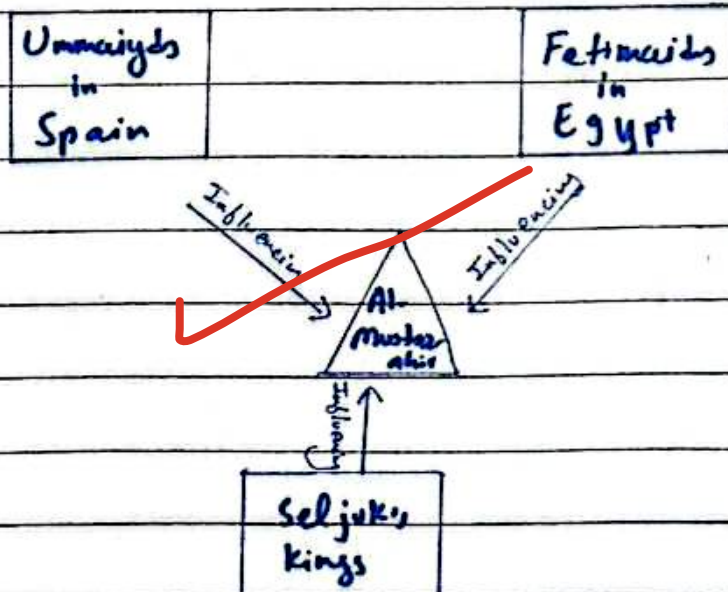 Ummaiyds
in
Spain
Fatimaids
in
Egypt
Influencing
Influencing
Al-
Mustaz
ahir
Influencing
Seljuks,
kings